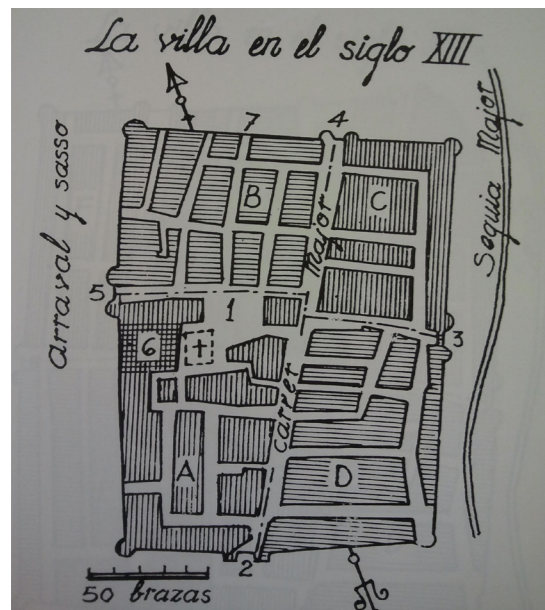 La villa en el siglo XIII
Arraval y sasso
Sequia Major
7
4
B
C
Major
5
1
3
6
carrer
A
D
2
50 brazas